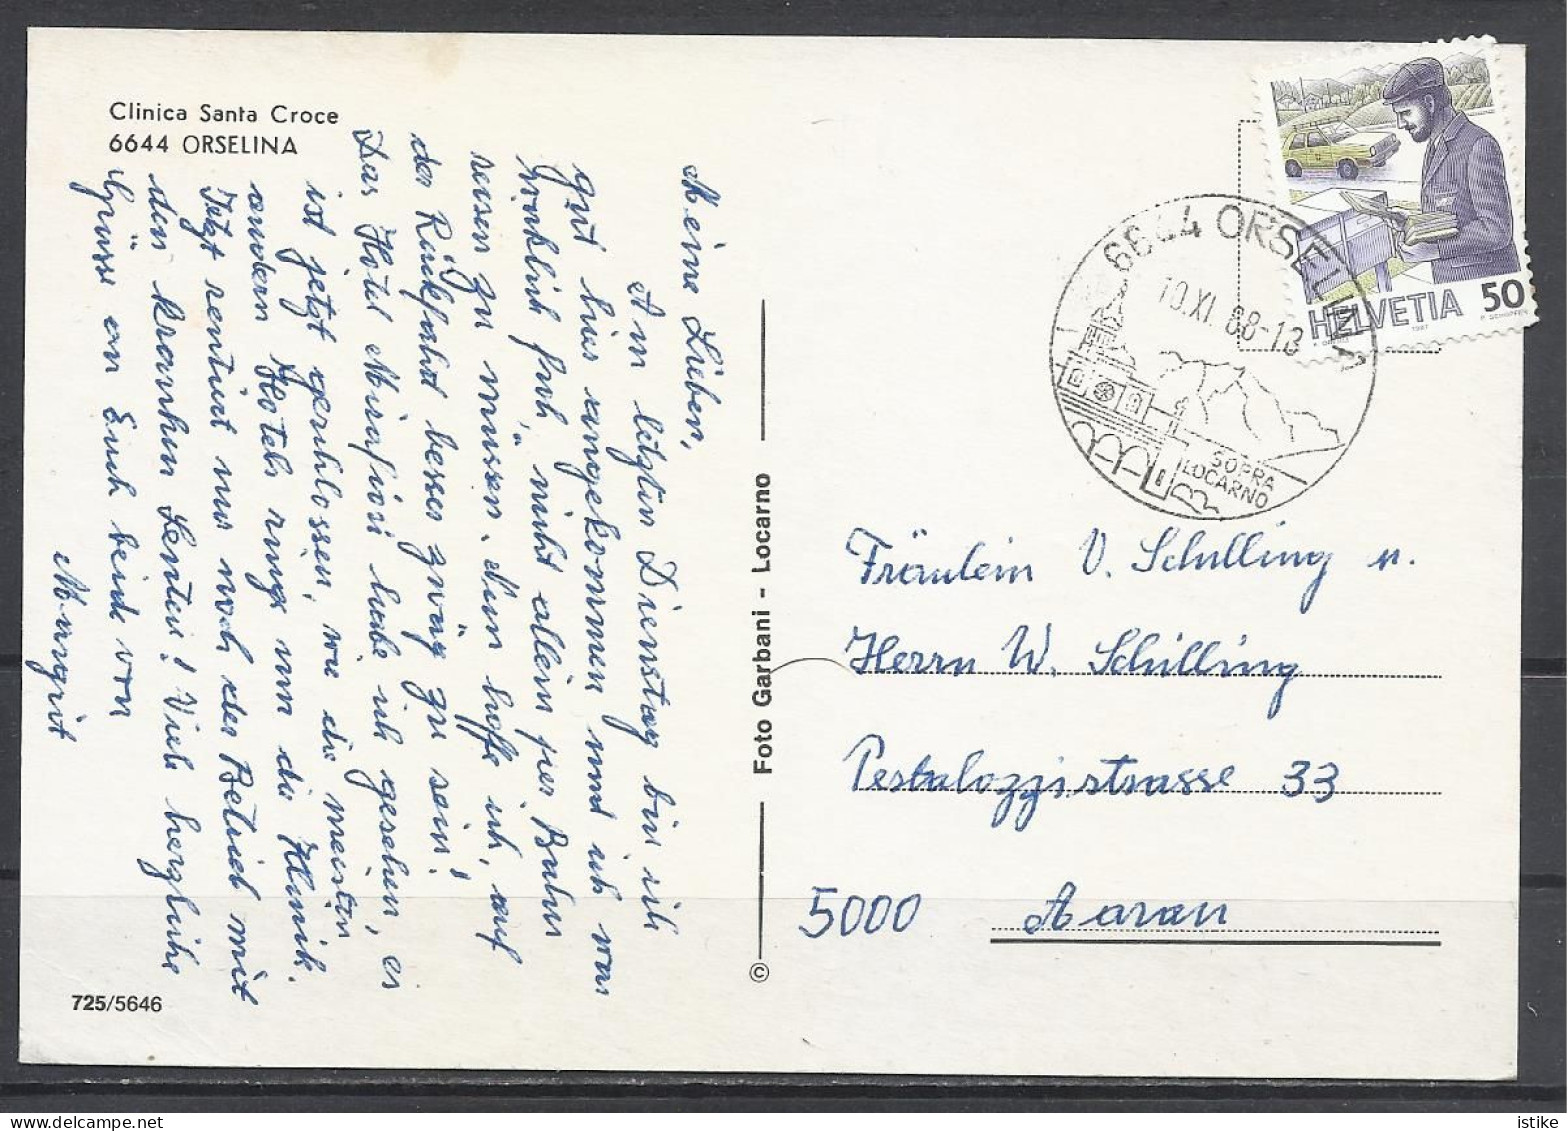 Clinica Santa Croce
6644 ORSELINA
Meine Lieben,
Am letzten Dienstag bin ich
gut hier angekommen und ich war
wirklich froh, nicht allein per Bahn
reisen zu müssen. Nun hoffe ich, auf
der Rückfahrt besser zwäg zu sein!
Das Hotel Mirafiori habe ich gesehen, es
ist jetzt geschlossen, wie die meisten
andern Hotels rings um die Klinik.
Jetzt rentiert nur noch der Betrieb mit
den kranken Leuten! Viele herzliche
Grüsse an Euch beide von
Margrit
725/5646
Foto Garbani - Locarno
©
HELVETIA 50
1987
6644 ORSELINA
10.XI.88-18
SOPRA
LOCARNO
Fräulein V. Schilling u.
Herrn W. Schilling
Pestalozzistrasse 33
5000 Aarau
istike